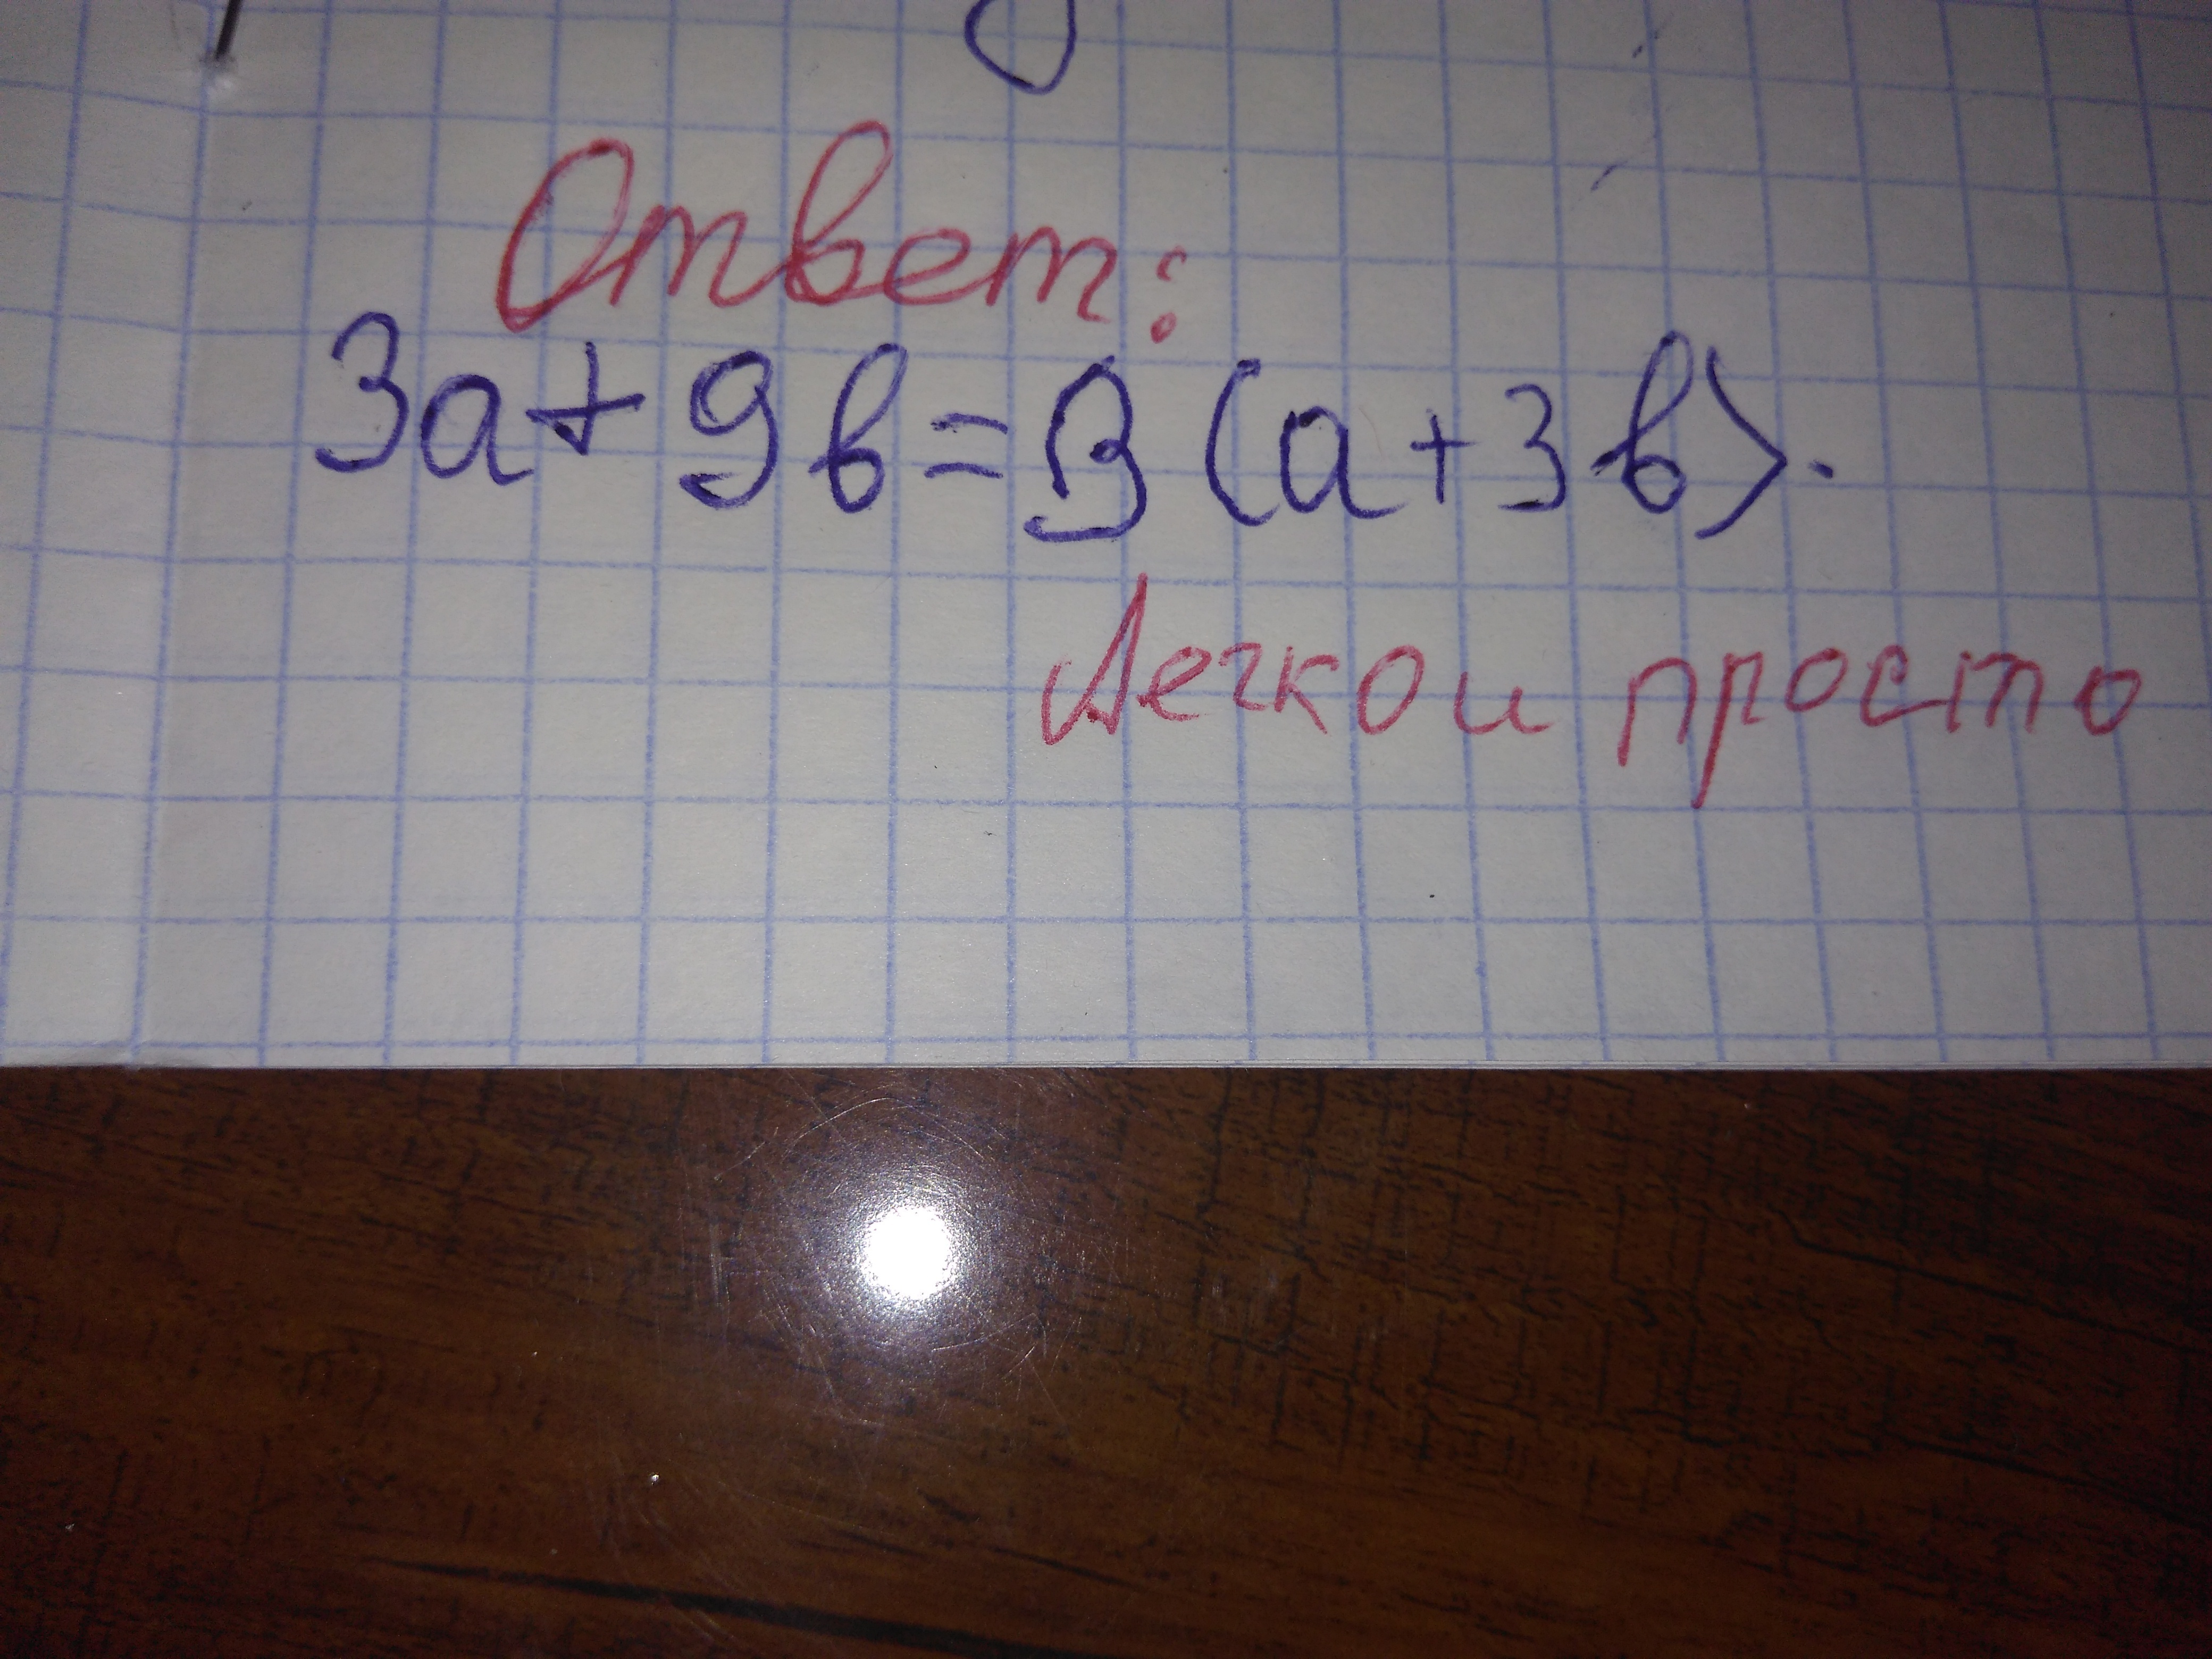 Ответ:
3а+9в=3(а+3в).
Легко и просто